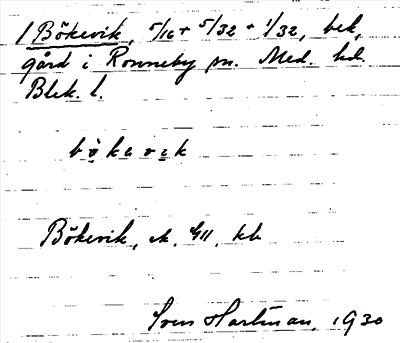 1 Bökevik, 5/16 + 5/32 + 1/32, bek,
gård i Ronneby sn. Med. hd.
Blek. l.
bökevik
Bökevik, ek. GII, kb
Sven Hartman, 1930